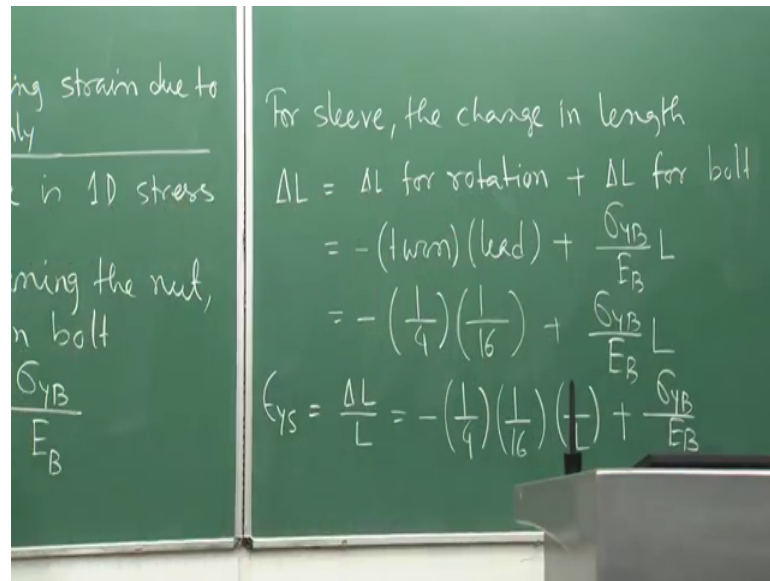 ing strain due to
ly
in 1D stress
ning the nut,
n bolt
σyB
EB
For sleeve, the change in length
ΔL = ΔL for rotation + ΔL for bolt
= -(turn)(lead) + σyB/EB L
= -(1/4)(1/16) + σyB/EB L
εys = ΔL/L = -(1/4)(1/16)(1/L) + σyB/EB